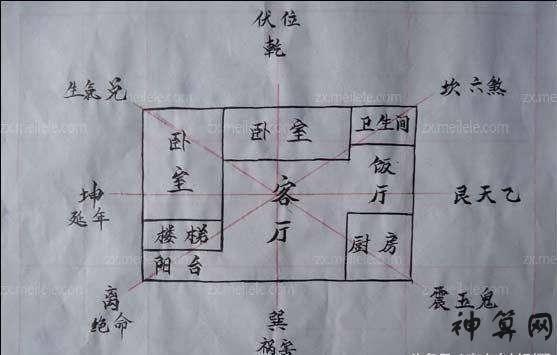 伏位
乾
生氣兑
坎六煞
zx.meilele.com
zx.meilele.com
zx.meilele.com
卧室
卧室
卫生间
饭厅
坤
延年
客厅
艮天乙
楼梯
阳台
厨房
zx.meilele.com
zx.meilele.com
zx.meilele.com
离
绝命
巽
祸害
震五鬼
神算网